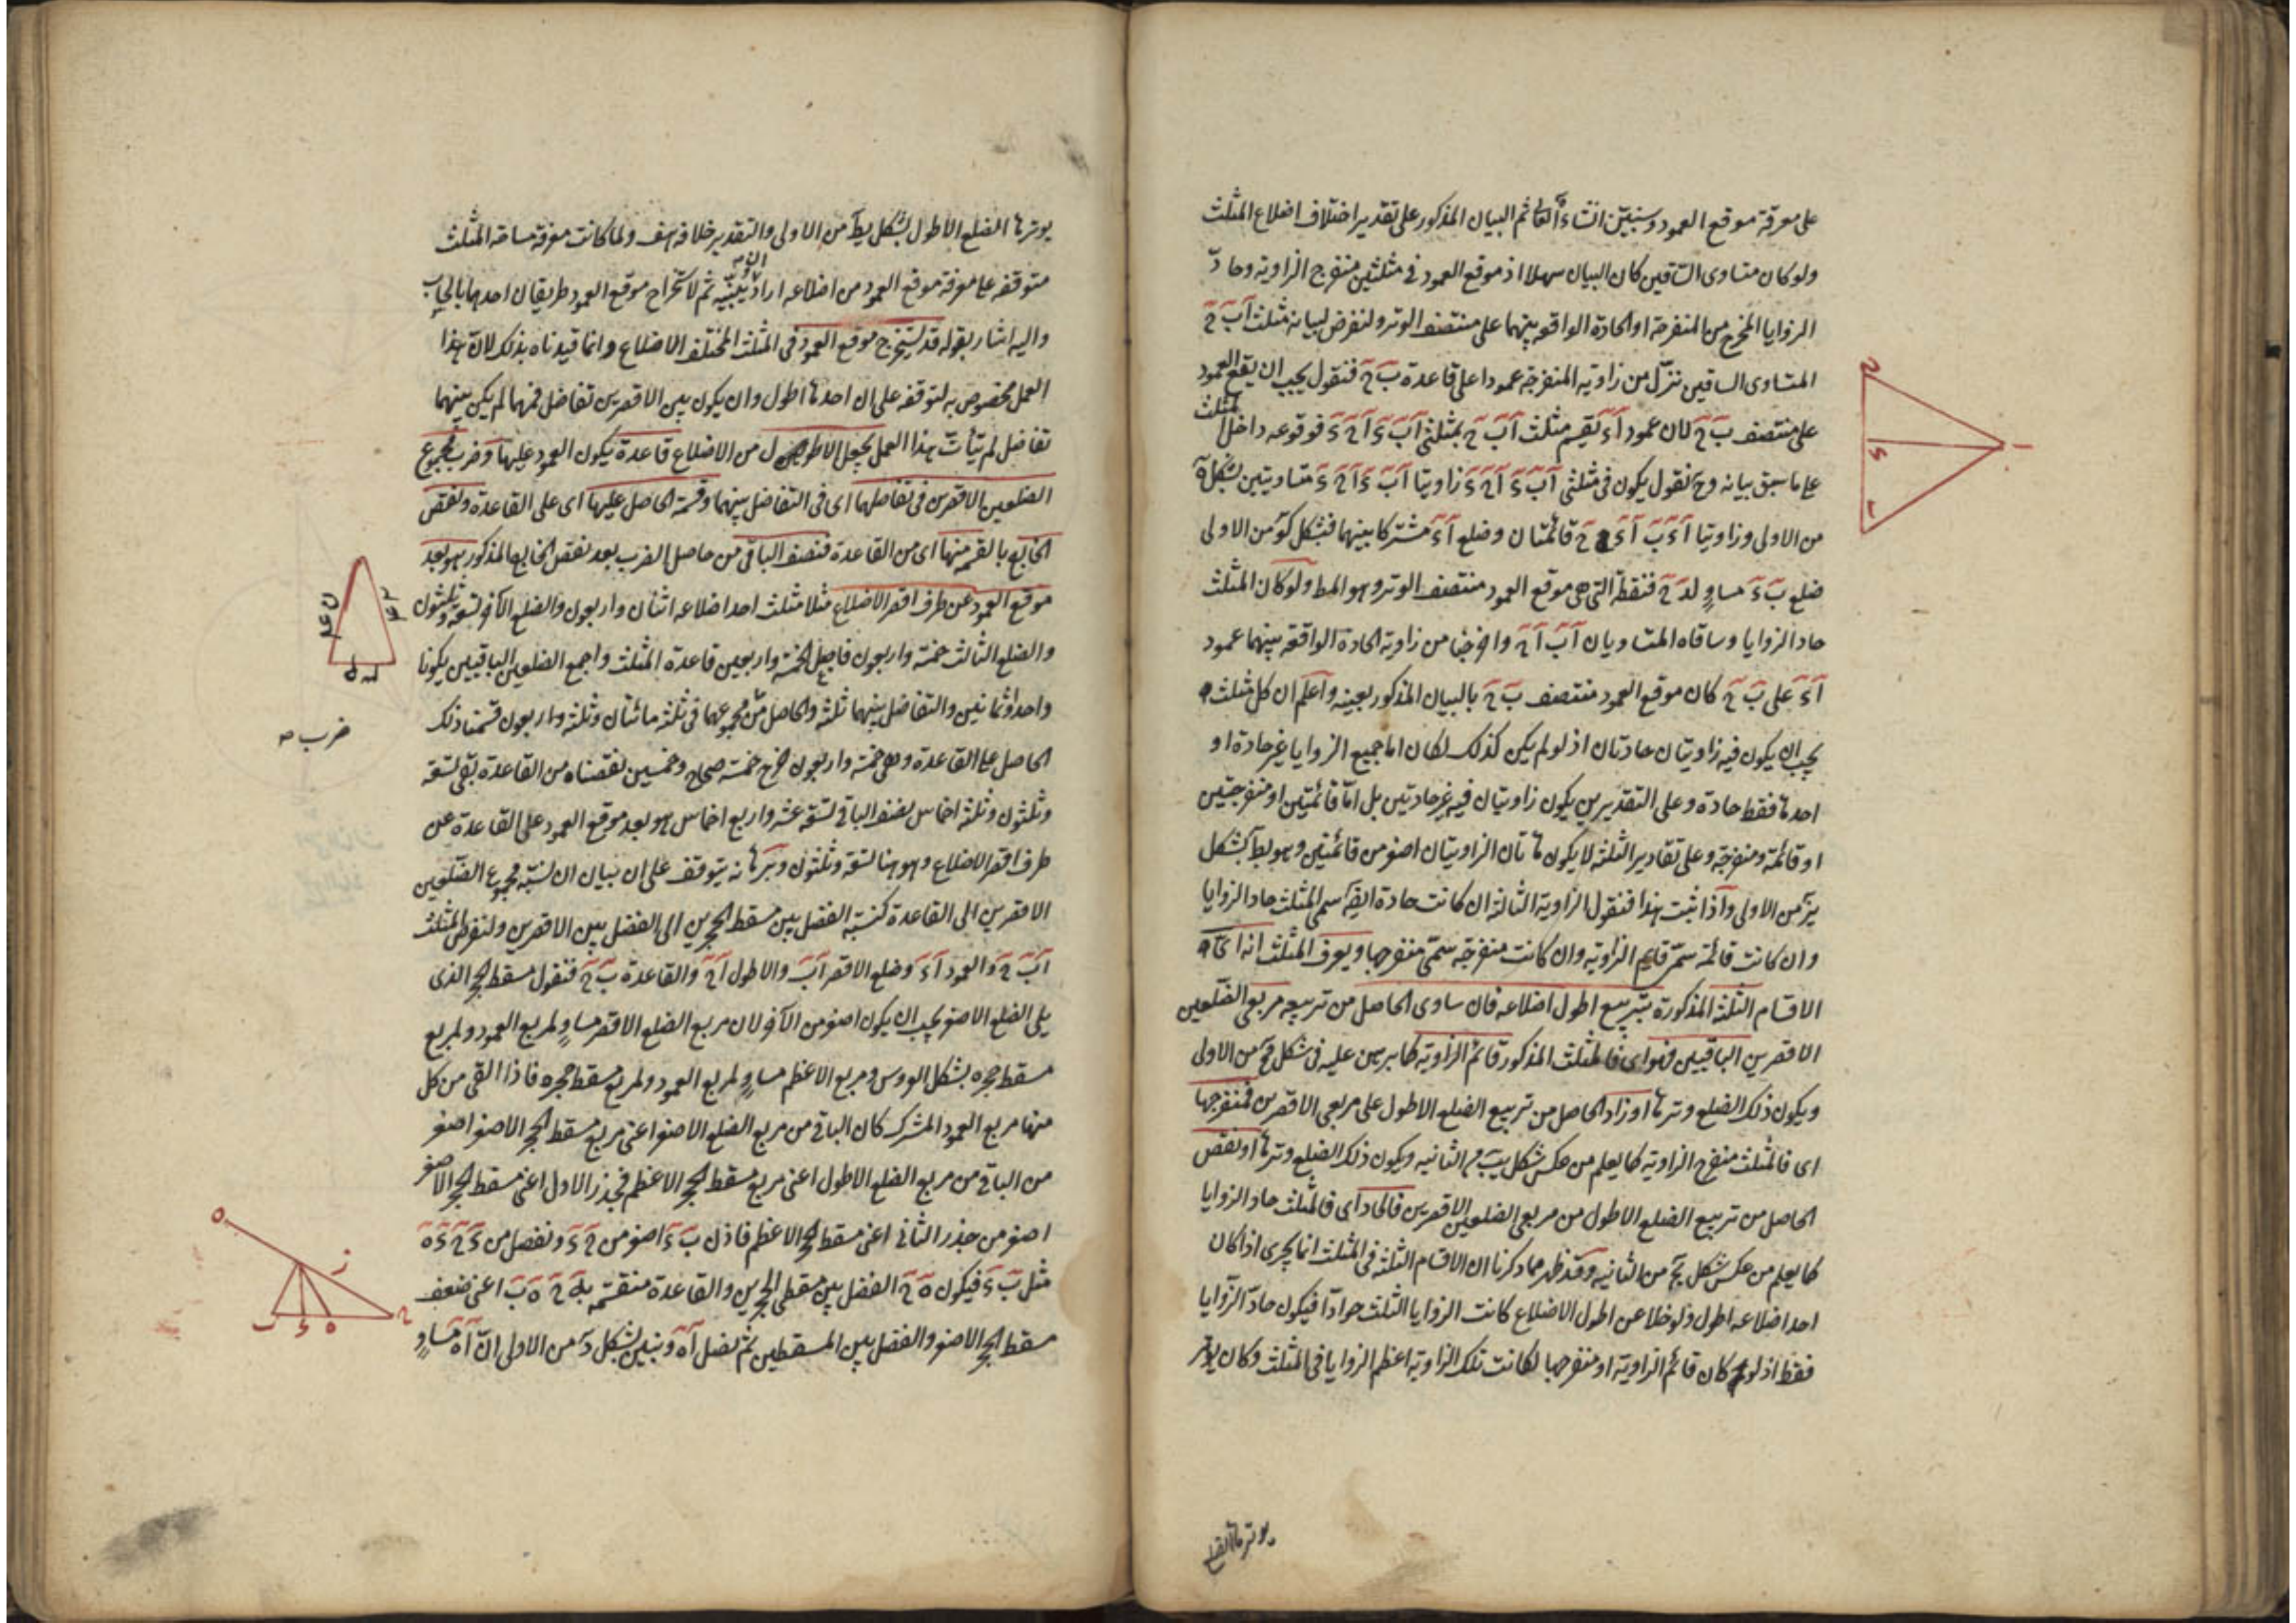 على معرفة موقع العمود وسنبين انشاء الله تعالى ثم البيان المذكور على تقدير اختلاف اضلاع المثلث
ولو كان متساوى الساقين كان البيان سهلا اذ موقع العمود فى مثلثين منفرج الزاوية وحاد
الزوايا المخرج من المنفرجة او الحادة الواقعة بينهما على منتصف الوتر ولنفرض لبيانه مثلث اَبَ حَ
المتساوى الساقين ننزل من زاويته المنفرجة عمودا على قاعدة بَ حَ فنقول يجب ان يقع العمود
على منتصف بَ حَ لان عمود اَءَ يقسم مثلث اَبَ حَ بمثلثى اَبَ ءَ اَحَ ءَ فوقوعه داخل المثلث
على ما سبق بيانه وح نقول يكون فى مثلثى اَبَ ءَ اَحَ ءَ زاويتا اَبَ ءَ اَحَ ءَ متساويتين بشكل هَ
من الاولى وزاويتا اَءَ بَ اَءَ حَ قائمتان وضلع اَءَ مشتركا بينهما فبشكل كوَ من الاولى
ضلع بَ ءَ مساوٍ لدَ حَ فنقطة التى هى موقع العمود منتصف الوتر وهو المط ولو كان المثلث
حاد الزوايا وساقاه المتساويان اَبَ اَحَ واخرجنا من زاوية الحادة الواقعة بينهما عمود
اَءَ على بَ حَ كان موقع العمود منتصف بَ حَ بالبيان المذكور بعينه واعلم ان كل مثلث
يجب ان يكون فيه زاويتان حادتان اذ لو لم يكن كذلك لكان اما جميع الزوايا غير حادة او
احدها فقط حادة وعلى التقديرين يكون زاويتان فيه غير حادتين بل اما قائمتين او منفرجتين
او قائمة ومنفرجة وعلى تقادير الثلثة لا يكون هاتان الزاويتان اصغر من قائمتين وهو بط بشكل
يزَ من الاولى واذا ثبت هذا فنقول الزاوية الثالثة ان كانت حادة ايضا سمى المثلث حاد الزوايا
وان كانت قائمة سمى قايم الزاوية وان كانت منفرجة سمى منفرجها ويعرف المثلث انه اى
الاقسام الثلثة المذكورة بتربيع اطول اضلاعه فان ساوى الحاصل من تربيعه مربعى الضلعين
الاقصرين الباقيين فهو اى فالمثلث المذكور قائم الزاوية كما برهن عليه فى شكل من الاولى
ويكون ذلك الضلع وترها او زاد الحاصل من تربيع الضلع الاطول على مربعى الاقصرين فمنفرجها
اى فالمثلث منفرج الزاوية كما يعلم من عكس شكل يبَ من الثانيه ويكون ذلك الضلع وترها او نقص
الحاصل من تربيع الضلع الاطول من مربعى الضلعين الاقصرين فالحاد اى فالمثلث حاد الزوايا
كما يعلم من عكس شكل يجَ من الثانيه وقد ظهر مما ذكرنا ان الاقسام الثلثة فى المثلث انما يجرى اذا كان
احد اضلاعه اطول ولو خلا عن اطول الاضلاع كانت الزوايا الثلث حوادا فيكون حاد الزوايا
فقط اذ لو كان قائم الزاوية او منفرجها لكانت تلك الزاوية اعظم الزوايا فى المثلث وكان يوتر
يوترها الضلع
ا
ح
ء
ب
يوترها الضلع الاطول بشكل يطَ من الاولى والتقدير خلافه هف ولما كانت معرفة مساحة المثلث
متوقفة على معرفة موقع العمود من اضلاعه اراد ان يبينه ثم لاستخراج موقع العمود طريقان احدهما بالحساب
واليه اشار بقوله قد يستخرج موقع العمود فى المثلث المختلف الاضلاع وانما قيدناه بذلك لان هذا
العمل مخصوص به لتوقفه على ان احدها اطول وان يكون بين الاقصرين تفاضل فمهما لم يكن بينهما
تفاضل لم يتأت هذا العمل يجعل الاطول من الاضلاع قاعدة يكون العمود عليها وضرب مجموع
الضلعين الاقصرين فى تفاضلهما اى فى التفاضل بينهما وقسمة الحاصل عليها اى على القاعدة ونقص
الخارج بالقسمة منها اى من القاعدة فنصف الباقى من حاصل الضرب بعد نقص الخارج المذكور هو بعد
موقع العمود عن طرف اقصر الاضلاع مثلا مثلث احد اضلاعه اثنان واربعون والضلع الآخر تسعة وثلثون
والضلع الثالث خمسة واربعون فاجعل الخمسة واربعين قاعدة المثلث واجمع الضلعين الباقيين يكونا
واحدا وثمانين والتفاضل بينهما ثلثة والحاصل من مجموعهما فى ثلثة مائتان وثلثة واربعون قسمنا ذلك
ضرب
الحاصل على القاعدة وهى خمسة واربعون خرج خمسة صحاح وخمسين نقصناه من القاعدة بقى تسعة
وثلثون وثلثة اخماس نصف الباقى تسعة عشر واربع اخماس هو بعد موقع العمود على القاعدة عن
طرف اقصر الاضلاع وهو هنا تسعة وثلثون وبرهانه يتوقف على ان بيان ان نسبة مجموع الضلعين
الاقصرين الى القاعدة كنسبة الفضل بين مسقط الحجرين الى الفضل بين الاقصرين ولنفرض المثلث
اَبَ حَ والعمود اَءَ وضلع الاقصر اَبَ والاطول اَحَ والقاعدة بَ حَ فنقول مسقط الحجر الذى
يلى الضلع الاصغر يجب ان يكون اصغر من الآخر لان مربع الضلع الاقصر مساوٍ لمربع العمود ولمربع
مسقط حجره بشكل العروس ومربع الاعظم مساوٍ لمربع العمود ولمربع مسقط حجره فاذا القى من كل
منهما مربع العمود المشترك كان الباقى من مربع الضلع الاصغر اعنى مربع مسقط الحجر الاصغر اصغر
من الباقى من مربع الضلع الاطول اعنى مربع مسقط الحجر الاعظم فجذر الاول اعنى مسقط الحجر الاصغر
اصغر من جذر الثانى اعنى مسقط الحجر الاعظم فاذن بَ ءَ اصغر من حَ ءَ ونفصل من ءَ حَ ءَ هَ
مثل بَ ءَ فيكون هَ حَ الفضل بين مسقطى الحجرين والقاعدة منقسمة بهَ حَ هَ بَ اعنى ضعف
مسقط الحجر الاصغر والفضل بين المسقطين ثم نصل اَهَ ونبين بشكل دَ من الاولى ان اَهَ مساوٍ
ه
ز
ح
ه
ء
ب